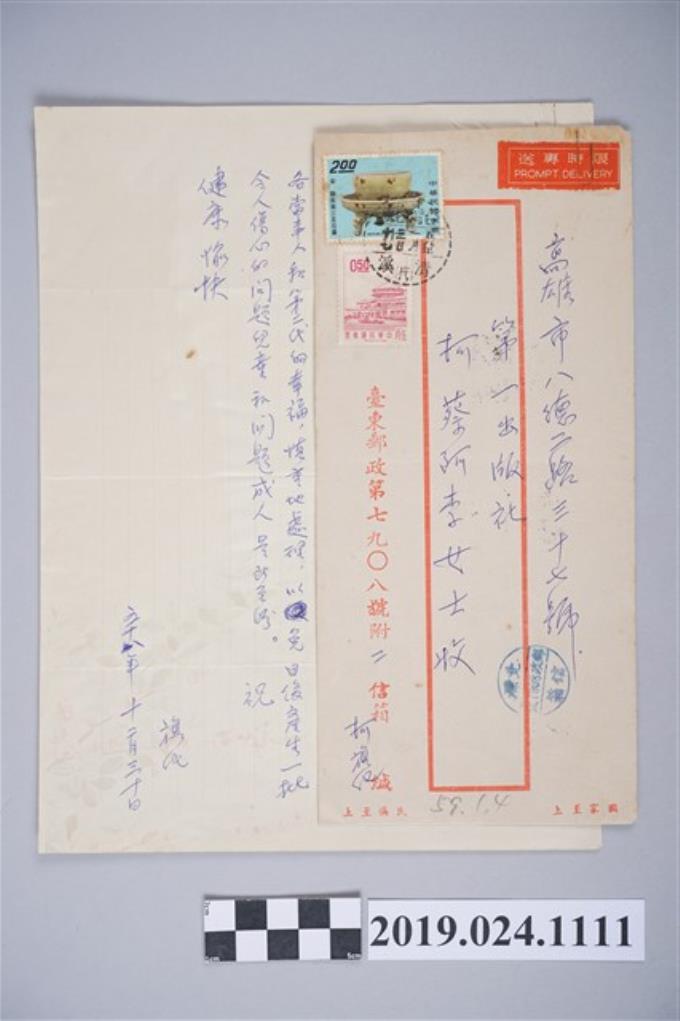 限時專送
PROMPT DELIVERY
高雄市八德二路三十七號
第一出版社
柯蔡阿李女士收
臺東郵政第七九〇八號附二信箱
柯旗化
緘
國家至上
民族至上
59.1.4
2.00
中華民國郵票
0.50
各當事人和第二代的幸福，慎重地處理，以免日後產生一批
令人傷心的問題兒童和問題成人，是所至盼。祝
健康愉快
旗化
五十八年十二月三十日
2019.024.1111